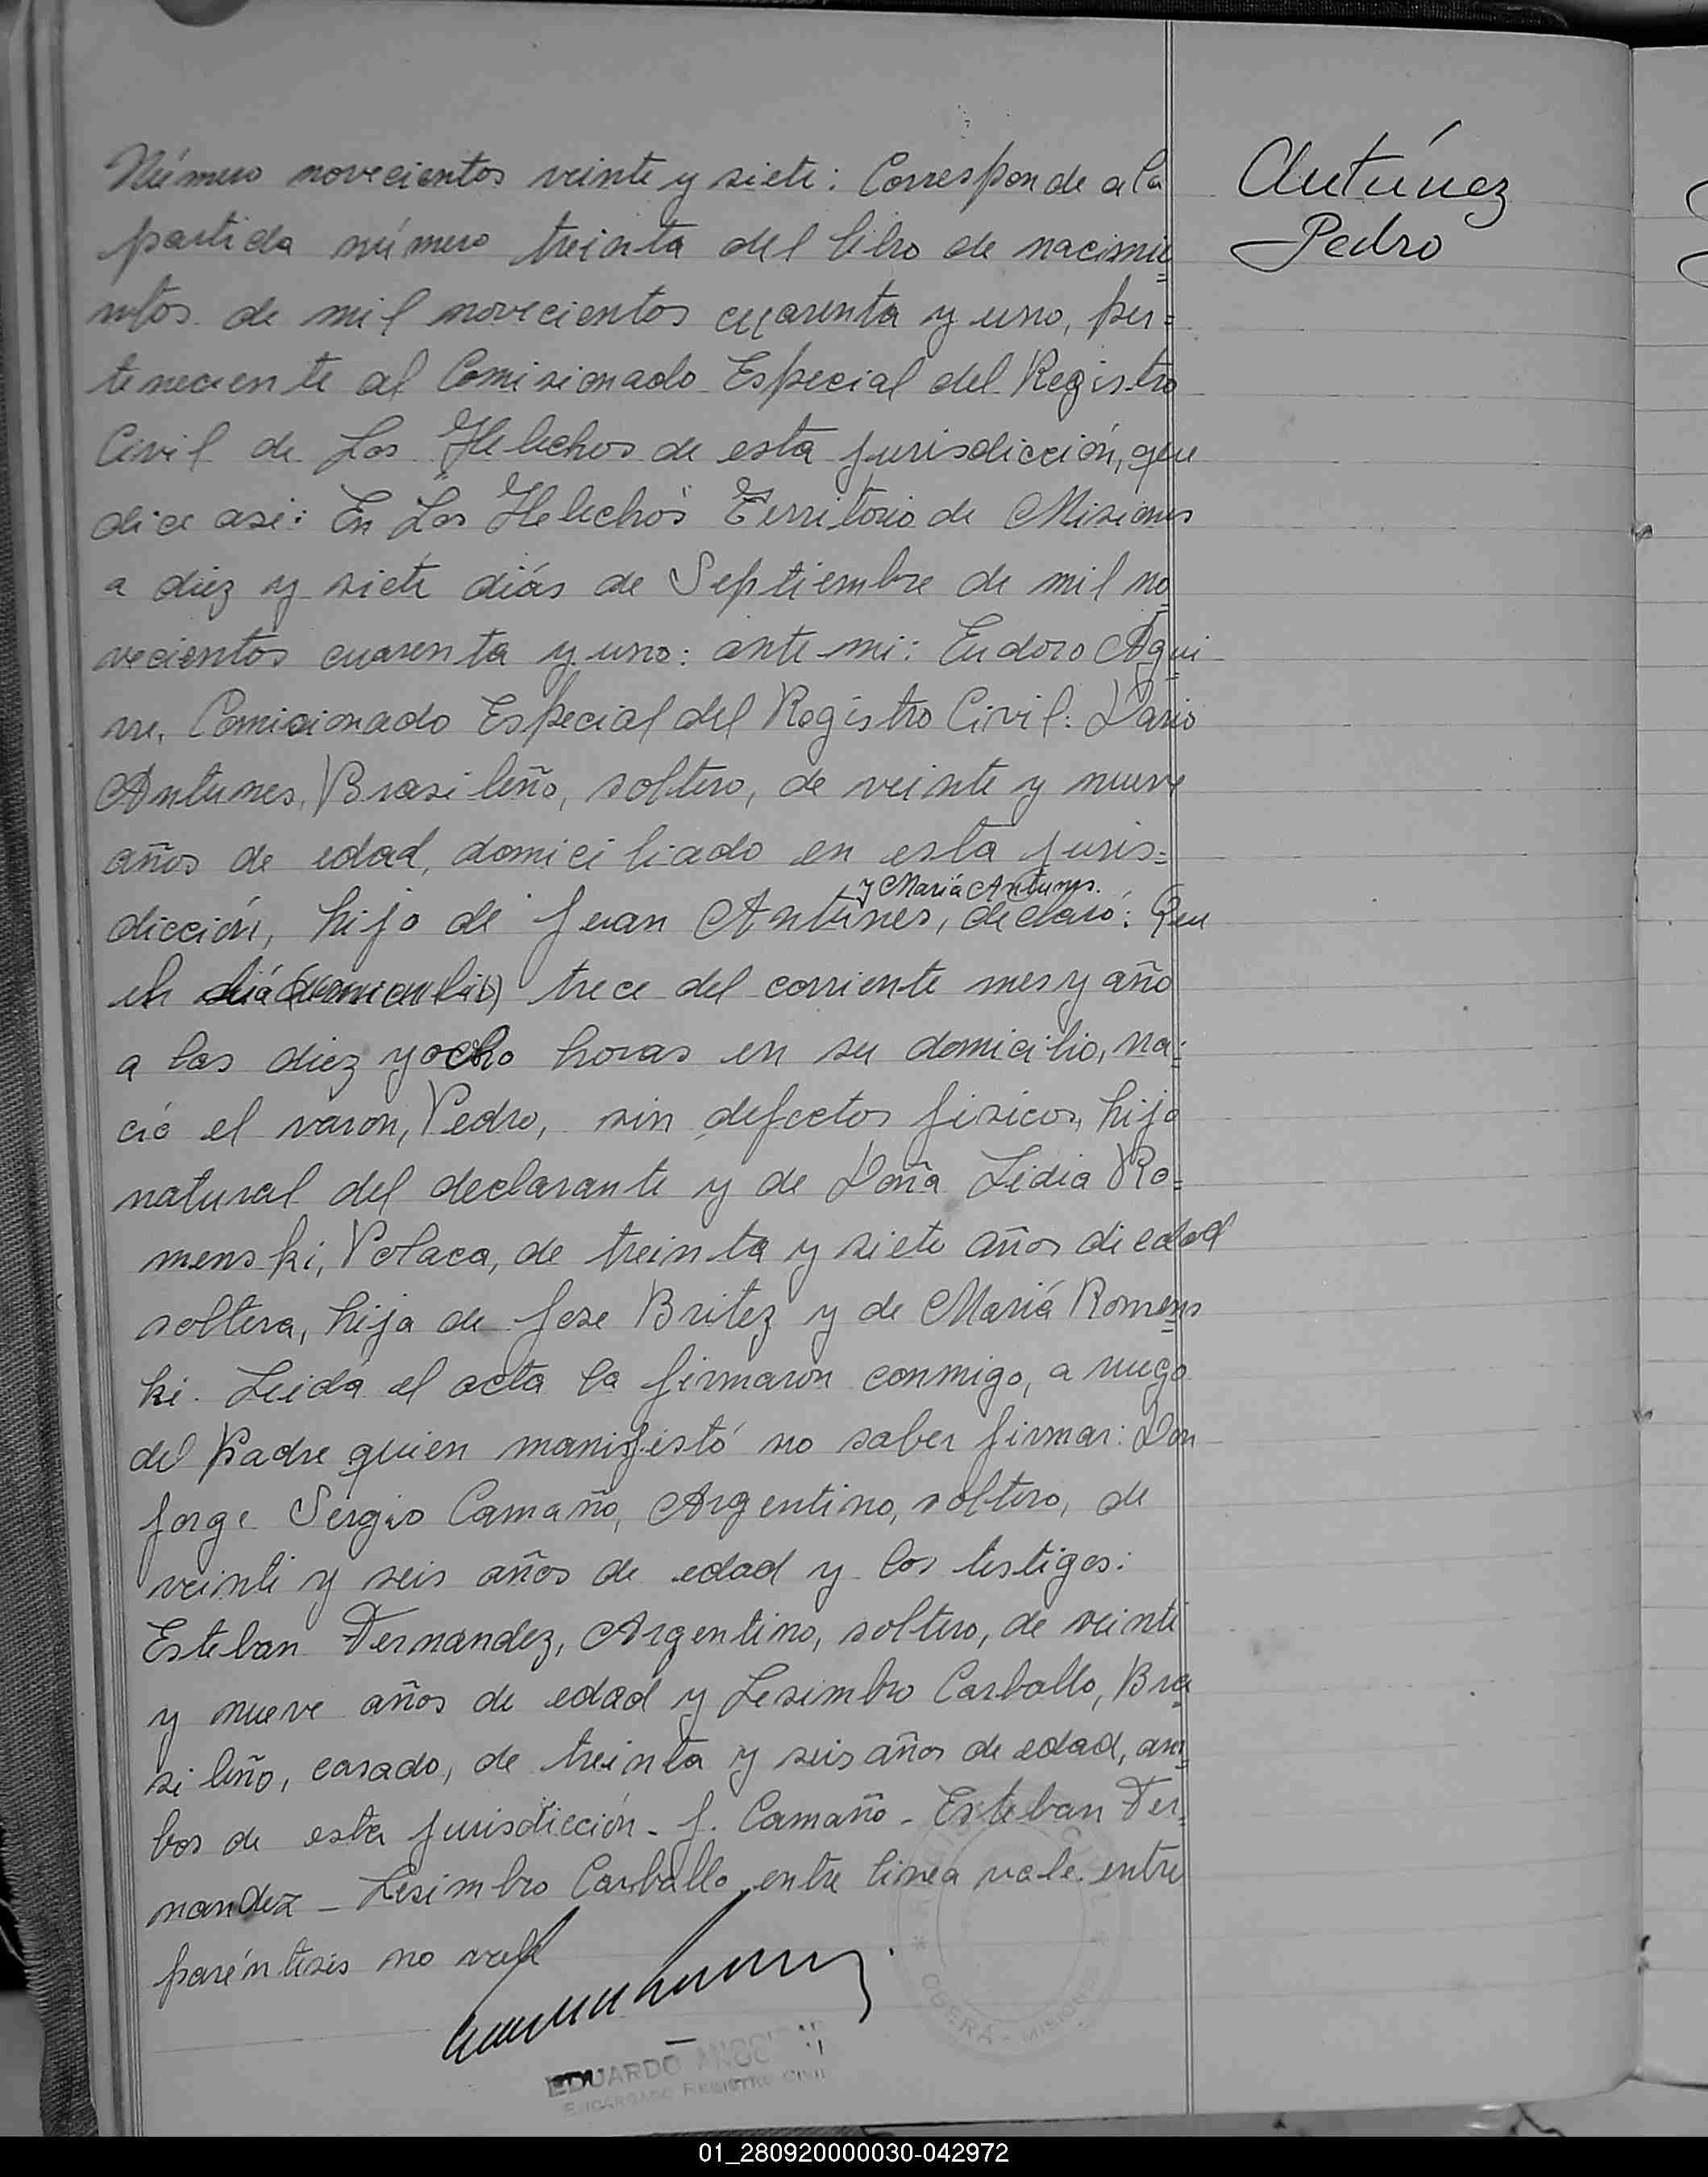 Número novecientos veinte y siete: Corresponde a la
partida número treinta del libro de nacimie=
ntos de mil novecientos cuarenta y uno, per=
teneciente al Comisionado Especial del Registro
Civil de Los Helechos de esta jurisdicción, que
dice asi: En "Los Helechos" Territorio de Misiones
a diez y siete diás de Septiembre de mil no=
vecientos cuarenta y uno: ante mi: Eudoro Agui=
rre, Comicionado Especial del Registro Civil: Dario
Antunes, Brasileño, soltero, de veinte y nueve
años de edad, domiciliado en esta juris=
y Mariá Antunes.
dicción, hijo de Juan Antúnes, declaró: Que
el diá trece del corriente mes y año
a las diez y ocho horas en su domicilio, na=
ció el varon, Pedro, sin defectos fisicos, hijo
natural del declarante y de Doña Lidia Ro=
menski, Polaca, de treinta y siete años de edad
soltera, hija de Jose Britez y de Mariá Romens=
ki. Leida el acta la firmaron conmigo, a ruego
del Padre quien manifestó no saber firmar: Don
Jorge Sergio Camaño, Argentino, soltero, de
veinte y seis años de edad y los testigos:
Esteban Fernandez, Argentino, soltero, de veinte
y nueve años de edad y Lesimbro Carballo, Bra=
sileño, casado, de treinta y seis años de edad, am=
bos de esta jurisdicción - J. Camaño - Esteban Fer=
nandez - Lesimbro Carballo entre linea vale. entre
paréntesis no vale
EDUARDO
ENCARGADO REGISTRO CIVIL
OBERÁ - MISIONES
Antúnez
Pedro
01_280920000030-042972